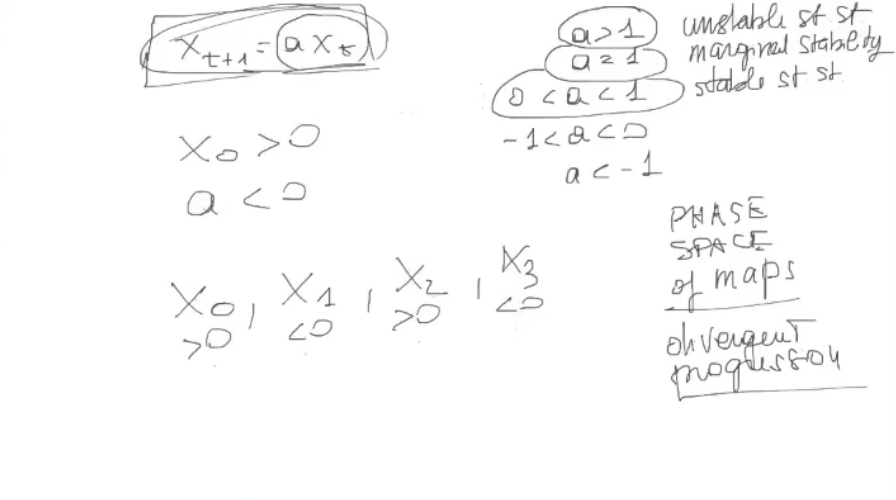 X_{t+1} = a X_t
X_0 > 0
a < 0
X_0, X_1, X_2, X_3
>0 <0 >0 <0
a > 1 unstable st st
a = 1 marginal stability
0 < a < 1 stable st st
-1 < a < 0
a < -1
PHASE
SPACE
of maps
divergent
progression